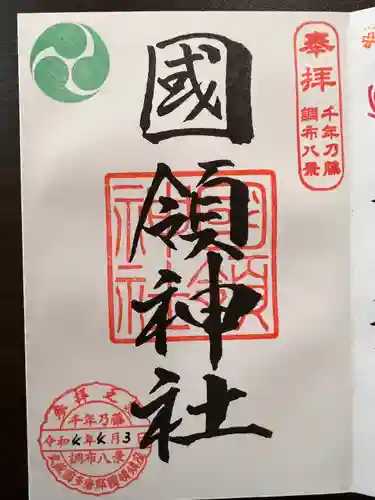 奉拝
千年乃藤
調布八景
國領神社
國領神社
参拝之
千年乃藤
令和4年4月3日
調布八景